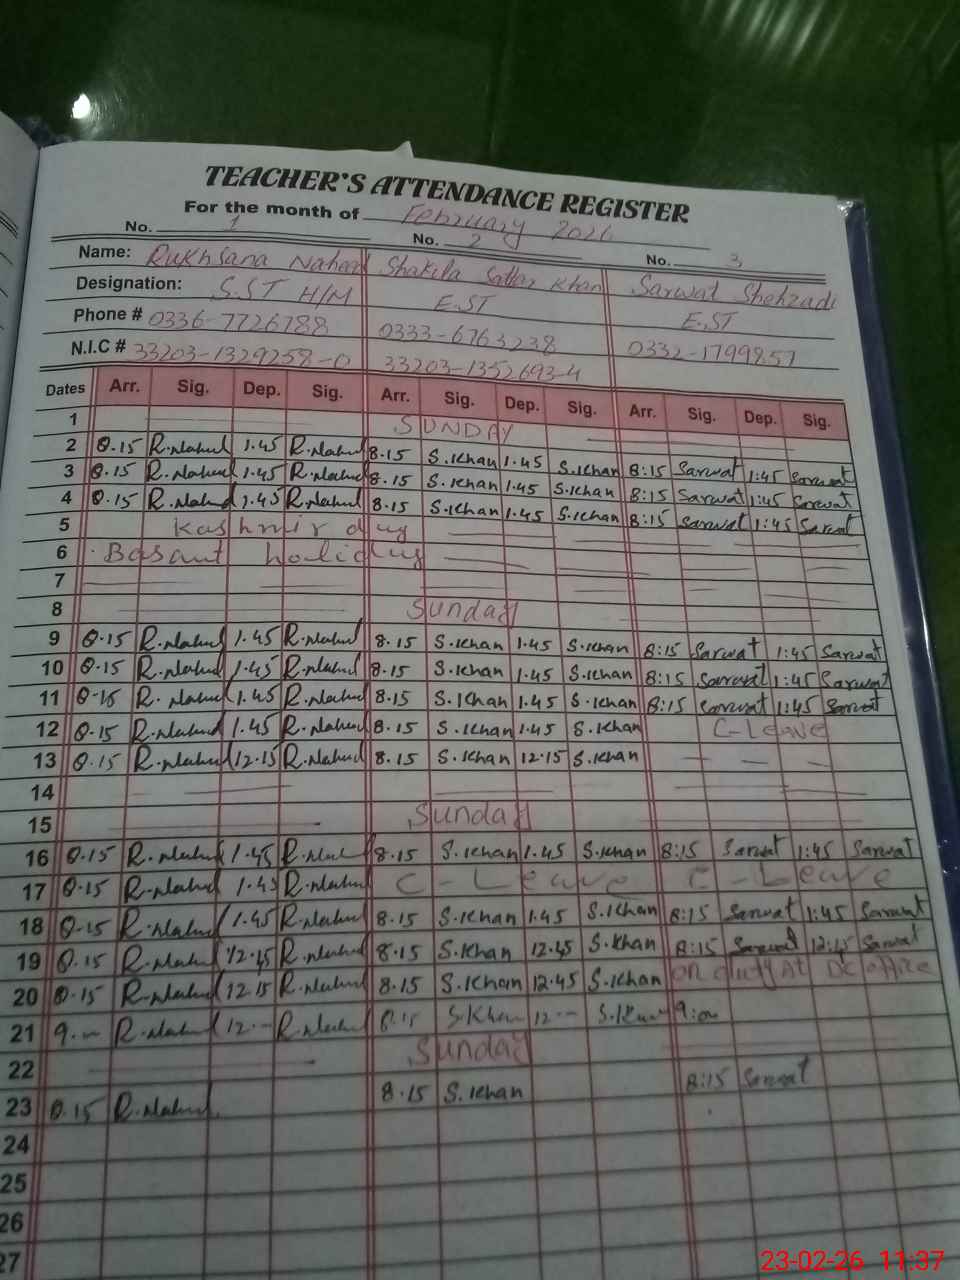 TEACHER'S ATTENDANCE REGISTER
For the month of February 2026
No. 1 No. 2 No. 3
Name: Rukhsana Shakila Sattar Khan Sarwat Shehzadi
Designation: S.ST H/M E.ST E.ST
Phone # 0336-7726788 0333-6763238 0332-1799857
N.I.C # 33203-1329258-0 33203-1352693-4
Dates Arr. Sig. Dep. Sig. Arr. Sig. Dep. Sig. Arr. Sig. Dep. Sig.
1 SUNDAY
2 8.15 1.45 8.15 S.Khan 1.45 S.Khan 8:15 Sarwat 1:45 Sarwat
3 8.15 1.45 8.15 S.Khan 1.45 S.Khan 8:15 Sarwat 1:45 Sarwat
4 8.15 1.45 8.15 S.Khan 1.45 S.Khan 8:15 Sarwat 1:45 Sarwat
5 Kashmir day
6 Basant holiday
7
8 Sunday
9 8.15 1.45 8.15 S.Khan 1.45 S.Khan 8:15 Sarwat 1:45 Sarwat
10 8.15 1.45 8.15 S.Khan 1.45 S.Khan 8:15 Sarwat 1:45 Sarwat
11 8.15 1.45 8.15 S.Khan 1.45 S.Khan 8:15 Sarwat 1:45 Sarwat
12 8.15 1.45 8.15 S.Khan 1.45 S.Khan C-Leave
13 8.15 12.15 8.15 S.Khan 12.15 S.Khan
14
15 Sunday
16 8.15 1.45 8.15 S.Khan 1.45 S.Khan 8:15 Sarwat 1:45 Sarwat
17 8.15 1.45 C-Leave C-Leave
18 8.15 1.45 8.15 S.Khan 1.45 S.Khan 8:15 Sarwat 1:45 Sarwat
19 8.15 12.45 8.15 S.Khan 12.45 S.Khan 8:15 Sarwat 12:45 Sarwat
20 8.15 12.15 8.15 S.Khan 12.45 S.Khan on duty At DC office
21 9.- 12.- S.Khan 12.- S.Khan 9:00
22 Sunday
23 8.15 8.15 S.Khan 8:15 Sarwat
24
25
26
27
23-02-26 11:37